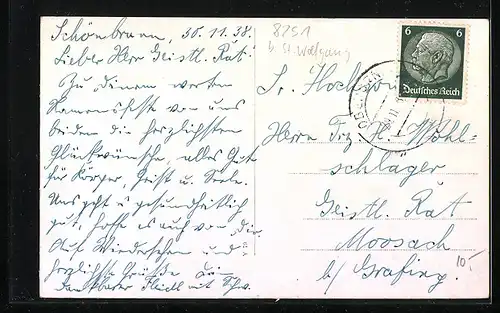 Schönbrunn, 30.11.38.
Lieber Herr Geistl. Rat!
Zu Deinem werten
Namensfeste von uns
beiden die herzlichsten
Glückwünsche, alles Gute
für Körper, Geist u. Seele.
Uns geht's gesundheitlich
gut, hoffe es auch von Dir.
Auf Wiedersehen und
herzlichste Grüße Dein
dankbarer mit Schw.
8251
b. St. Wolfgang
6 6
Deutsches Reich
Sr. Hochwürden
Herrn Frz. H. Wohl-
schläger
Geistl. Rat
Moosach
b/ Grafing.
10.-